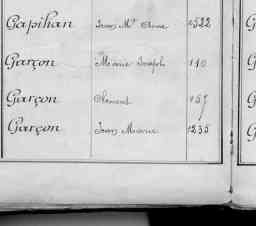 Gapihan Jean Mie Anne 1522
Garçon Marie Joseph 110
Garçon Clement 157
Garçon Jean Marie 1235
G
G
G
G